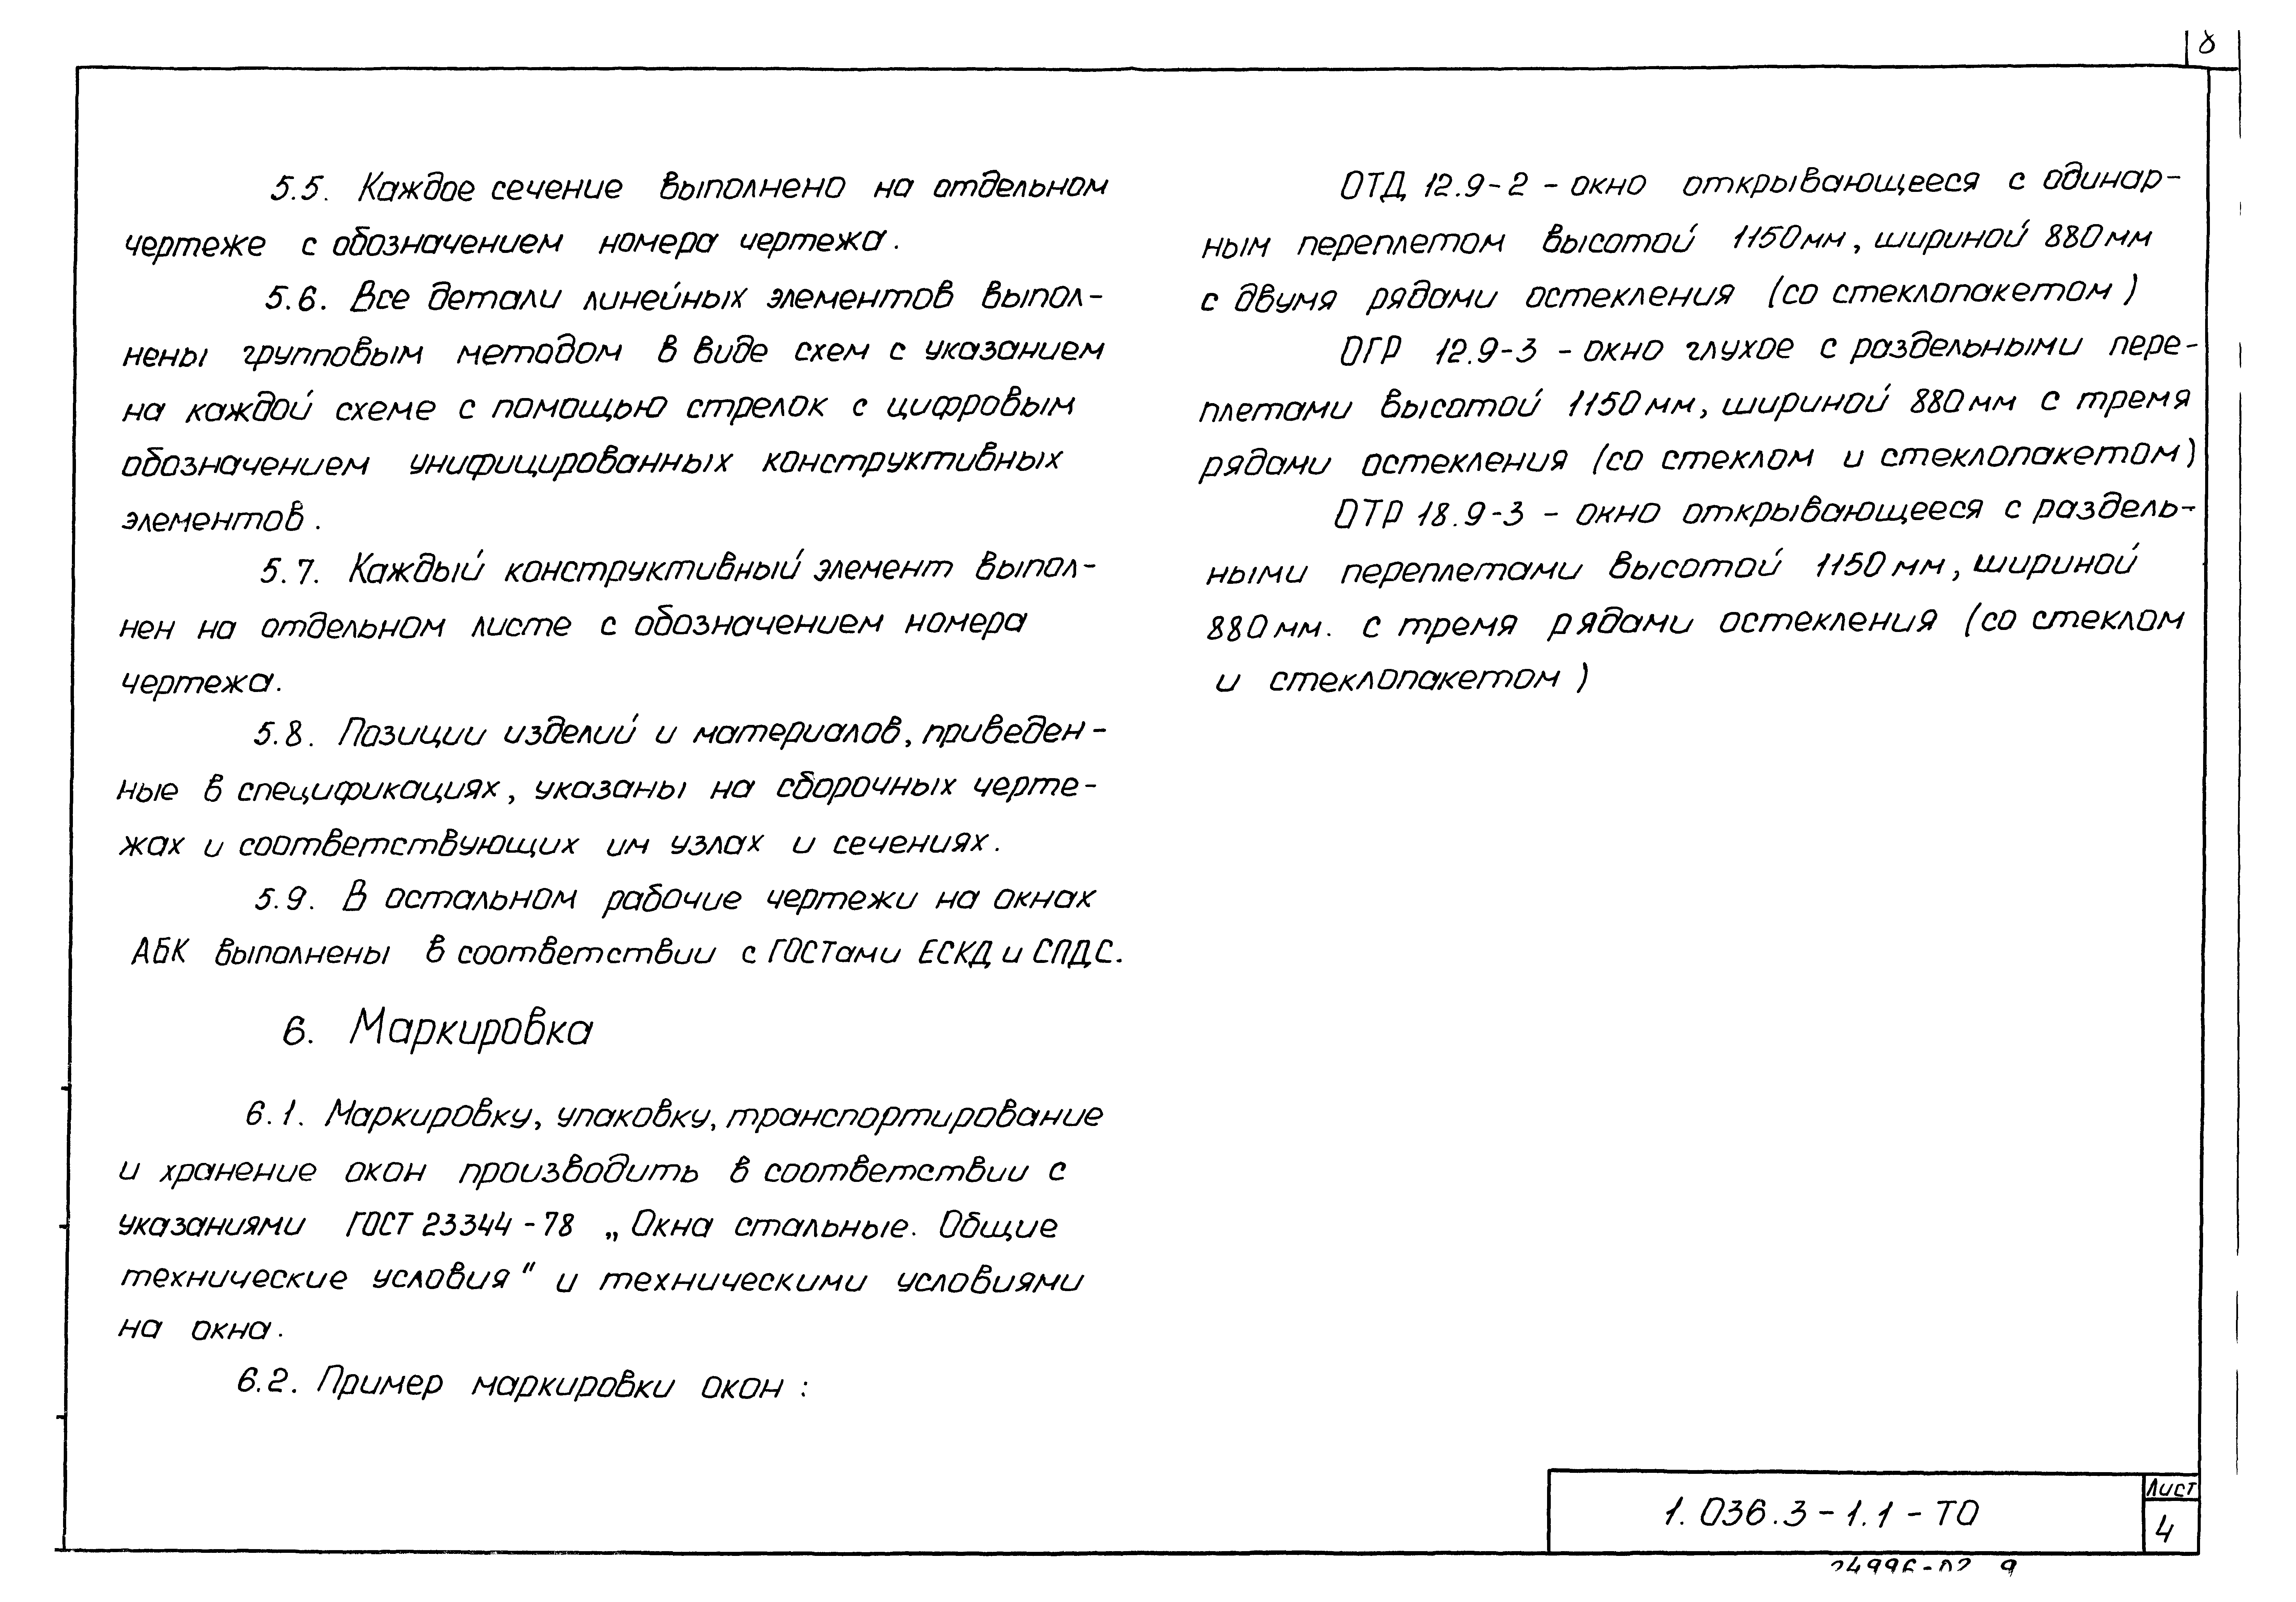 8
5.5. Каждое сечение выполнено на отдельном
чертеже с обозначением номера чертежа.
5.6. Все детали линейных элементов выпол-
нены групповым методом в виде схем с указанием
на каждой схеме с помощью стрелок с цифровым
обозначением унифицированных конструктивных
элементов.
5.7. Каждый конструктивный элемент выпол-
нен на отдельном листе с обозначением номера
чертежа.
5.8. Позиции изделий и материалов, приведен-
ные в спецификациях, указаны на сборочных черте-
жах и соответствующих им узлах и сечениях.
5.9. В остальном рабочие чертежи на окнах
АБК выполнены в соответствии с ГОСТами ЕСКД и СПДС.
6. Маркировка
6.1. Маркировку, упаковку, транспортирование
и хранение окон производить в соответствии с
указаниями ГОСТ 23344-78 „Окна стальные. Общие
технические условия" и техническими условиями
на окна.
6.2. Пример маркировки окон:
ОТД 12.9-2 - окно открывающееся с одинар-
ным переплетом высотой 1150мм, шириной 880мм
с двумя рядами остекления (со стеклопакетом)
ОГР 12.9-3 - окно глухое с раздельными пере-
плетами высотой 1150мм, шириной 880мм с тремя
рядами остекления (со стеклом и стеклопакетом)
ОТР 18.9-3 - окно открывающееся с раздель-
ными переплетами высотой 1150мм, шириной
880мм. с тремя рядами остекления (со стеклом
и стеклопакетом)
1.036.3-1.1-ТО
Лист
4
24996-02 9